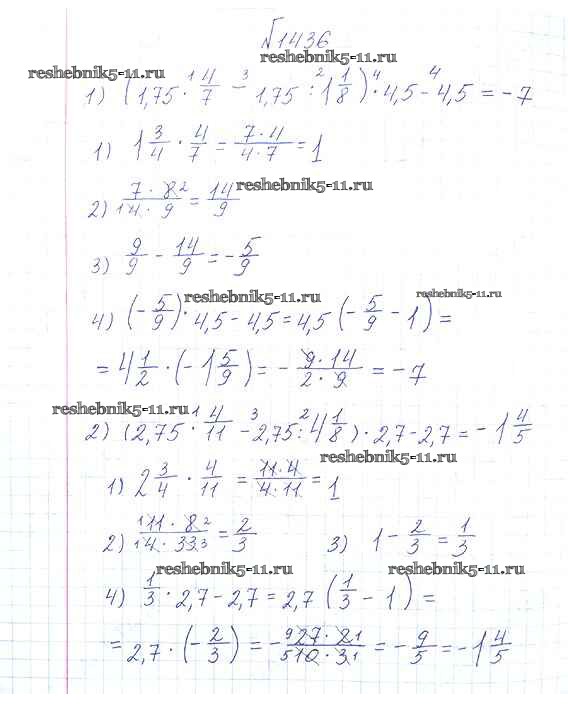 №1436
reshebnik5-11.ru
reshebnik5-11.ru
1) (1,75 · 4/7 - 1,75 : 1 1/8) · 4,5 - 4,5 = -7
1) 1 3/4 · 4/7 = 7·4/4·7 = 1
reshebnik5-11.ru
2) 7·8/4·9 = 14/9
3) 9/9 - 14/9 = -5/9
reshebnik5-11.ru
reshebnik5-11.ru
4) (-5/9) · 4,5 - 4,5 = 4,5 (-5/9 - 1) =
= 4 1/2 · (-1 5/9) = -9·14/2·9 = -7
reshebnik5-11.ru
2) (2,75 · 4/11 - 2,75 : 4 1/8) · 2,7 - 2,7 = -1 4/5
reshebnik5-11.ru
1) 2 3/4 · 4/11 = 11·4/4·11 = 1
2) 11·8/4·33 = 2/3 3) 1 - 2/3 = 1/3
reshebnik5-11.ru
reshebnik5-11.ru
4) 1/3 · 2,7 - 2,7 = 2,7 (1/3 - 1) =
= 2,7 · (-2/3) = -27·2/10·3 = -9/5 = -1 4/5